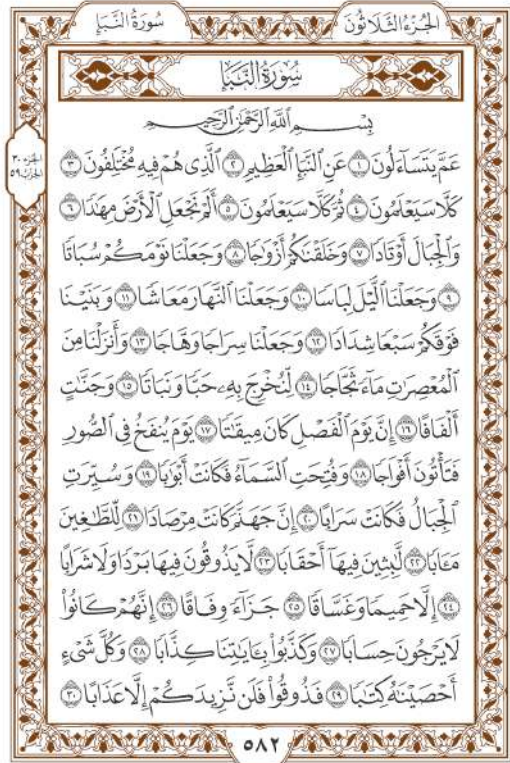 سُورَةُ النَّبَإِ الجُزْءُ الثَّلَاثُونَ
سُورَةُ النَّبَإِ
بِسْمِ ٱللَّهِ ٱلرَّحْمَٰنِ ٱلرَّحِيمِ
عَمَّ يَتَسَآءَلُونَ ١ عَنِ ٱلنَّبَإِ ٱلْعَظِيمِ ٢ ٱلَّذِى هُمْ فِيهِ مُخْتَلِفُونَ ٣
كَلَّا سَيَعْلَمُونَ ٤ ثُمَّ كَلَّا سَيَعْلَمُونَ ٥ أَلَمْ نَجْعَلِ ٱلْأَرْضَ مِهَٰدًا ٦
وَٱلْجِبَالَ أَوْتَادًا ٧ وَخَلَقْنَٰكُمْ أَزْوَٰجًا ٨ وَجَعَلْنَا نَوْمَكُمْ سُبَاتًا
٩ وَجَعَلْنَا ٱلَّيْلَ لِبَاسًا ١٠ وَجَعَلْنَا ٱلنَّهَارَ مَعَاشًا ١١ وَبَنَيْنَا
فَوْقَكُمْ سَبْعًا شِدَادًا ١٢ وَجَعَلْنَا سِرَاجًا وَهَّاجًا ١٣ وَأَنزَلْنَا مِنَ
ٱلْمُعْصِرَٰتِ مَآءً ثَجَّاجًا ١٤ لِّنُخْرِجَ بِهِۦ حَبًّا وَنَبَاتًا ١٥ وَجَنَّٰتٍ
أَلْفَافًا ١٦ إِنَّ يَوْمَ ٱلْفَصْلِ كَانَ مِيقَٰتًا ١٧ يَوْمَ يُنفَخُ فِى ٱلصُّورِ
فَتَأْتُونَ أَفْوَاجًا ١٨ وَفُتِحَتِ ٱلسَّمَآءُ فَكَانَتْ أَبْوَٰبًا ١٩ وَسُيِّرَتِ
ٱلْجِبَالُ فَكَانَتْ سَرَابًا ٢٠ إِنَّ جَهَنَّمَ كَانَتْ مِرْصَادًا ٢١ لِّلطَّٰغِينَ
مَـَٔابًا ٢٢ لَّٰبِثِينَ فِيهَآ أَحْقَابًا ٢٣ لَّا يَذُوقُونَ فِيهَا بَرْدًا وَلَا شَرَابًا
٢٤ إِلَّا حَمِيمًا وَغَسَّاقًا ٢٥ جَزَآءً وِفَاقًا ٢٦ إِنَّهُمْ كَانُوا۟
لَا يَرْجُونَ حِسَابًا ٢٧ وَكَذَّبُوا۟ بِـَٔايَٰتِنَا كِذَّابًا ٢٨ وَكُلَّ شَىْءٍ
أَحْصَيْنَٰهُ كِتَٰبًا ٢٩ فَذُوقُوا۟ فَلَن نَّزِيدَكُمْ إِلَّا عَذَابًا ٣٠
الجزء ٣٠
الحزب ٥٩
٥٨٢